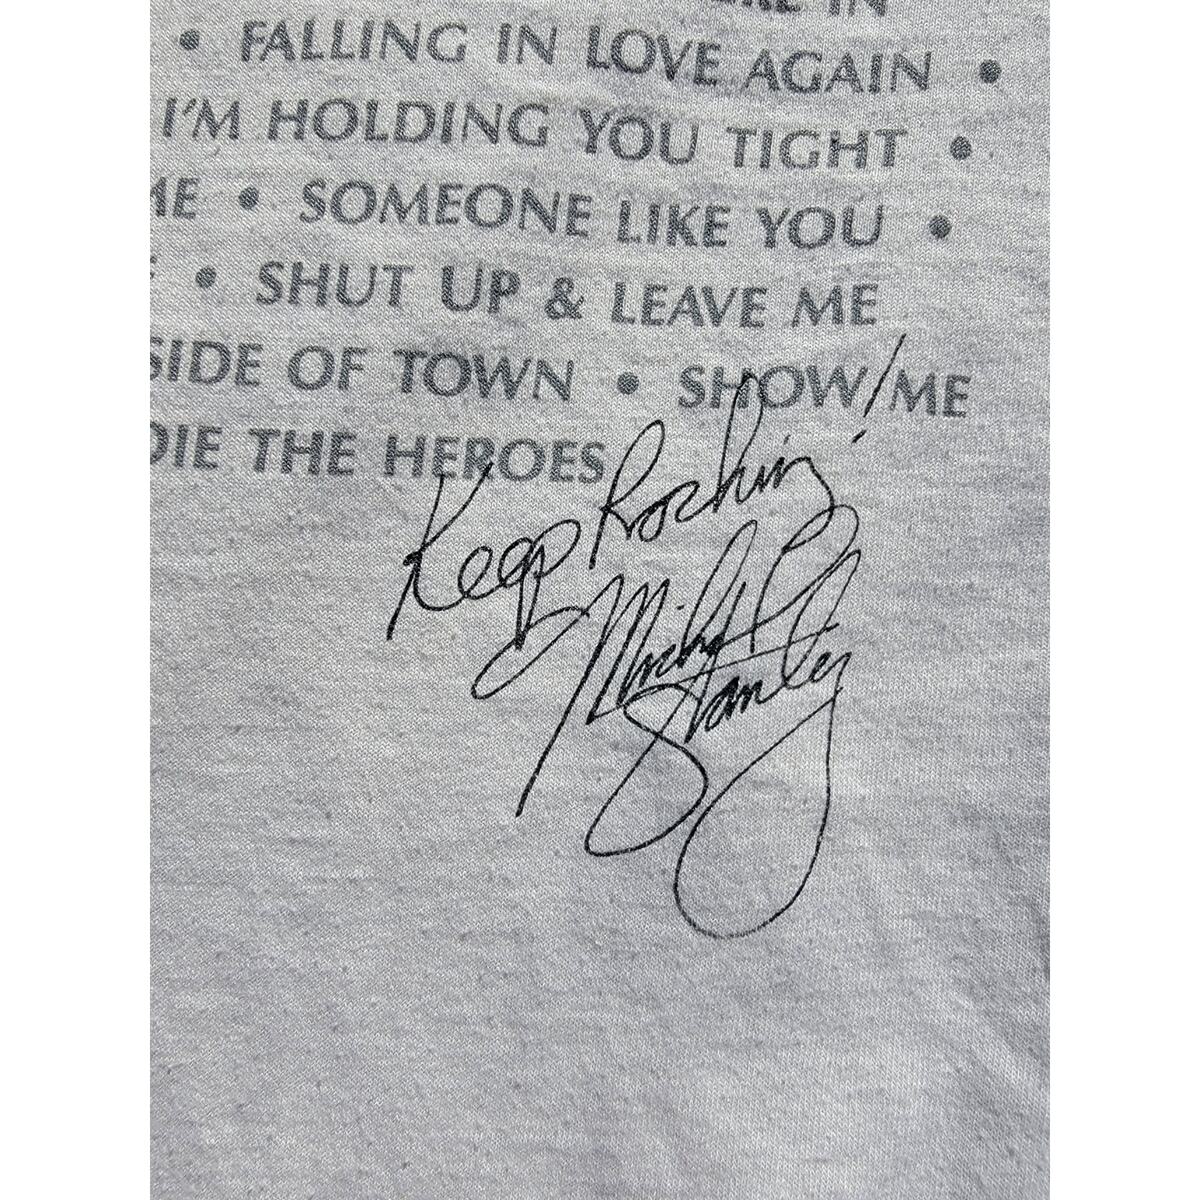 IN
• FALLING IN LOVE AGAIN •
I'M HOLDING YOU TIGHT •
ME • SOMEONE LIKE YOU •
• SHUT UP & LEAVE ME
SIDE OF TOWN • SHOW ME
DIE THE HEROES
Keep Rockin!
Michael
Stanley